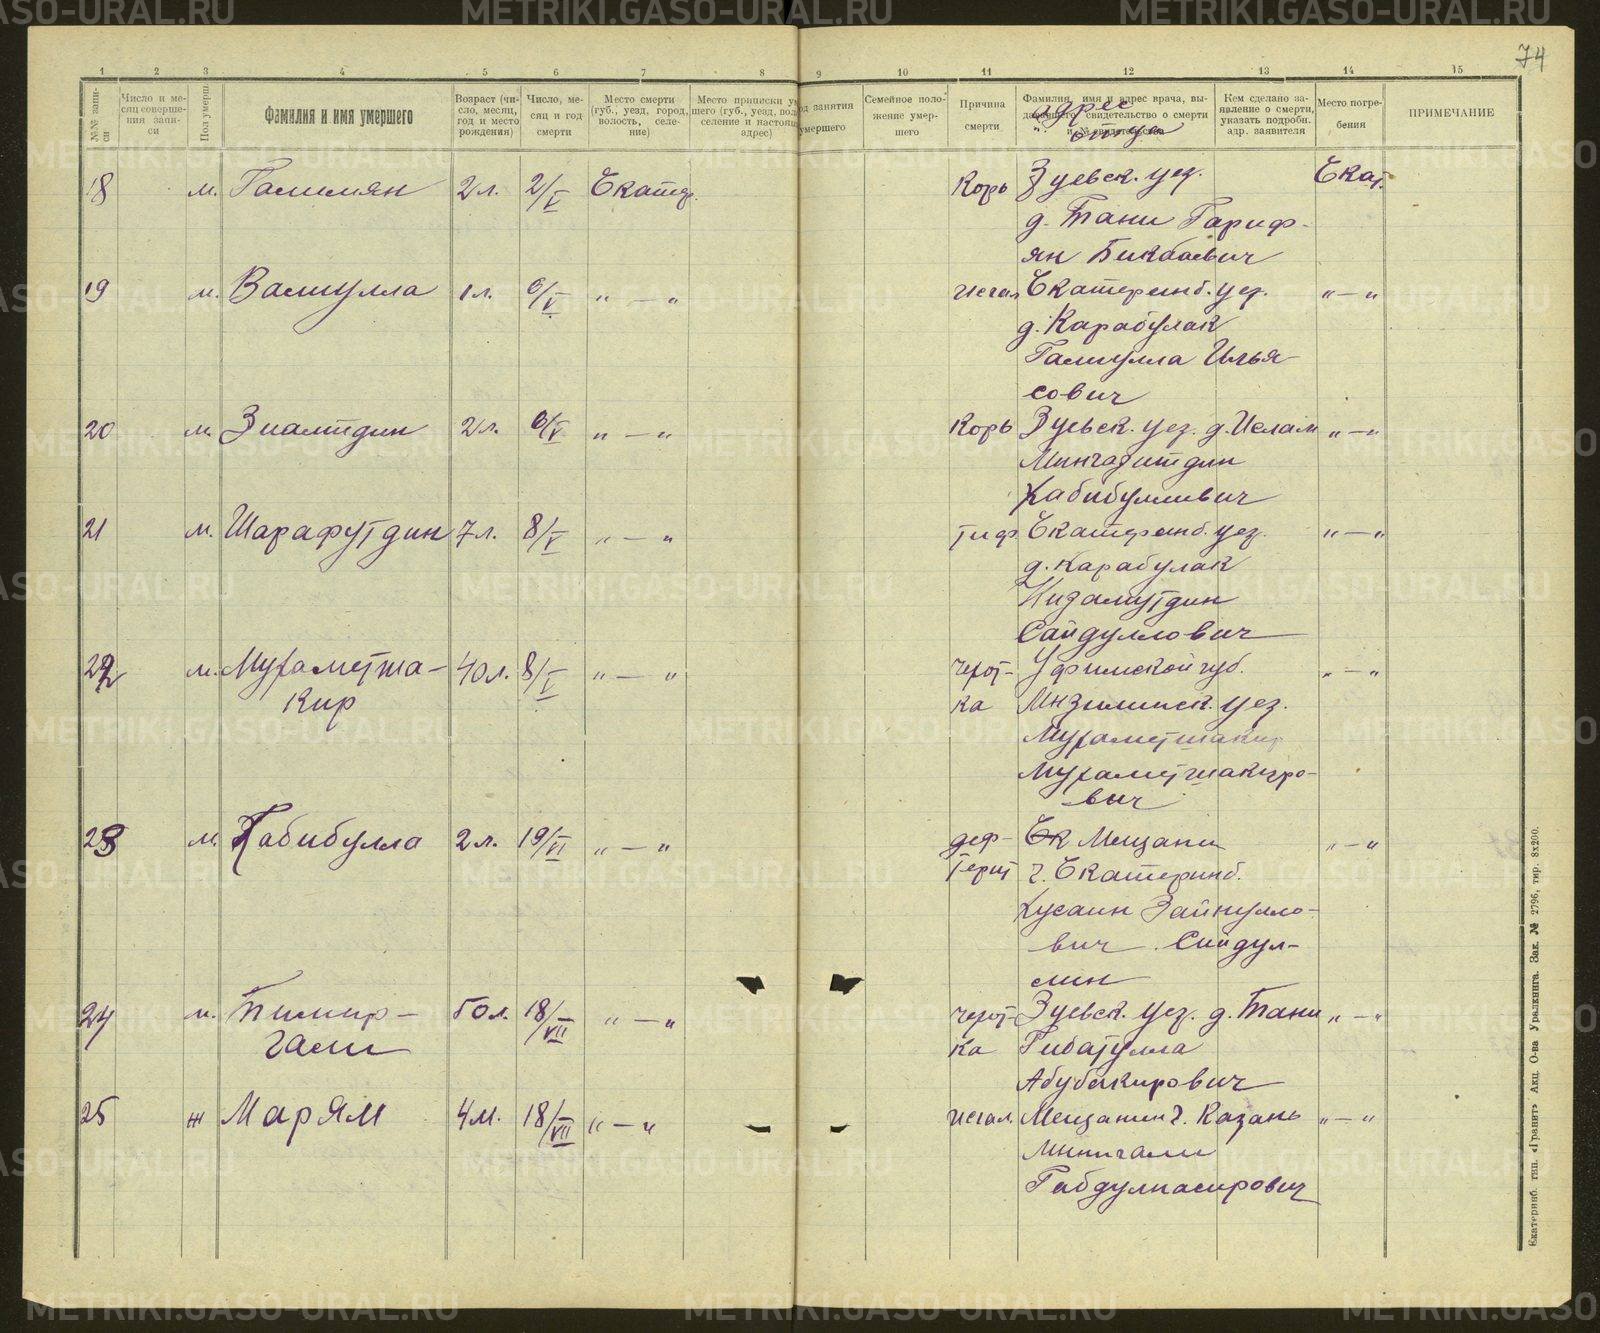 74
1 2 3 4 5 6 7 8 9 10 11 12 13 14 15
№№ записи
Число и месяц совершения записи
Пол умерш.
Фамилия и имя умершего
Возраст (число, месяц, год и место рождения)
Число, месяц и год смерти
Место смерти (губ., уезд, город, волость, селение)
Место приписки
Семейное положение умершего
Причина смерти
Фамилия, имя и адрес врача, выдавшего свидетельство о смерти и № свидетельства
адрес
отца
Кем сделано заявление о смерти, указать подробн. адр. заявителя
Место погребения
ПРИМЕЧАНИЕ
18 м. Галимян 2 л. 2/V Екатер. Корь Зуевск. уез. Екат.
д. Тани Гариф-
ян Бикбаевич
19 м. Валиулла 1 л. 6/V " — " Исхал Екатеринб. уез. " — "
д. Карабулак
Галиулла Илья-
сович
20 м. Зиалитдин 2 л. 6/V " — " Корь Зуевск. уез. д. Ислам " — "
Мингазитдин
Хабибуллович
21 м. Шарафутдин 7 л. 8/V " — " Тиф Екатеринб. уез. " — "
д. Карабулак
Низамутдин
Сайдуллович
22 м. Мухаметша- 40 л. 8/V " — " чехот- Уфимской губ. " — "
кир ка Мнзилинск. уез.
Мухаметшакир
Мухаметшакиро-
вич
23 м. Хабибулла 2 л. 19/VI " — " деф- Ек Мещани " — "
терит г. Екатеринб.
Хусаин Зайнулло-
вич Сайдул-
лин
24 м. Тимир- 50 л. 18/VII " — " чехот- Зуевск. уез. д. Тани " — "
гали ка Гибатулла
Абубакирович
25 ж Марям 4 м. 18/VII " — " Исхал. Мещанин г. Казань " — "
Минигали
Габдулнасирович
Екатеринб. тип. «Гранит» Акц. О-ва Уралкнига. Зак. № 2796, тир. 8х200.
METRIKI.GASO-URAL.RU